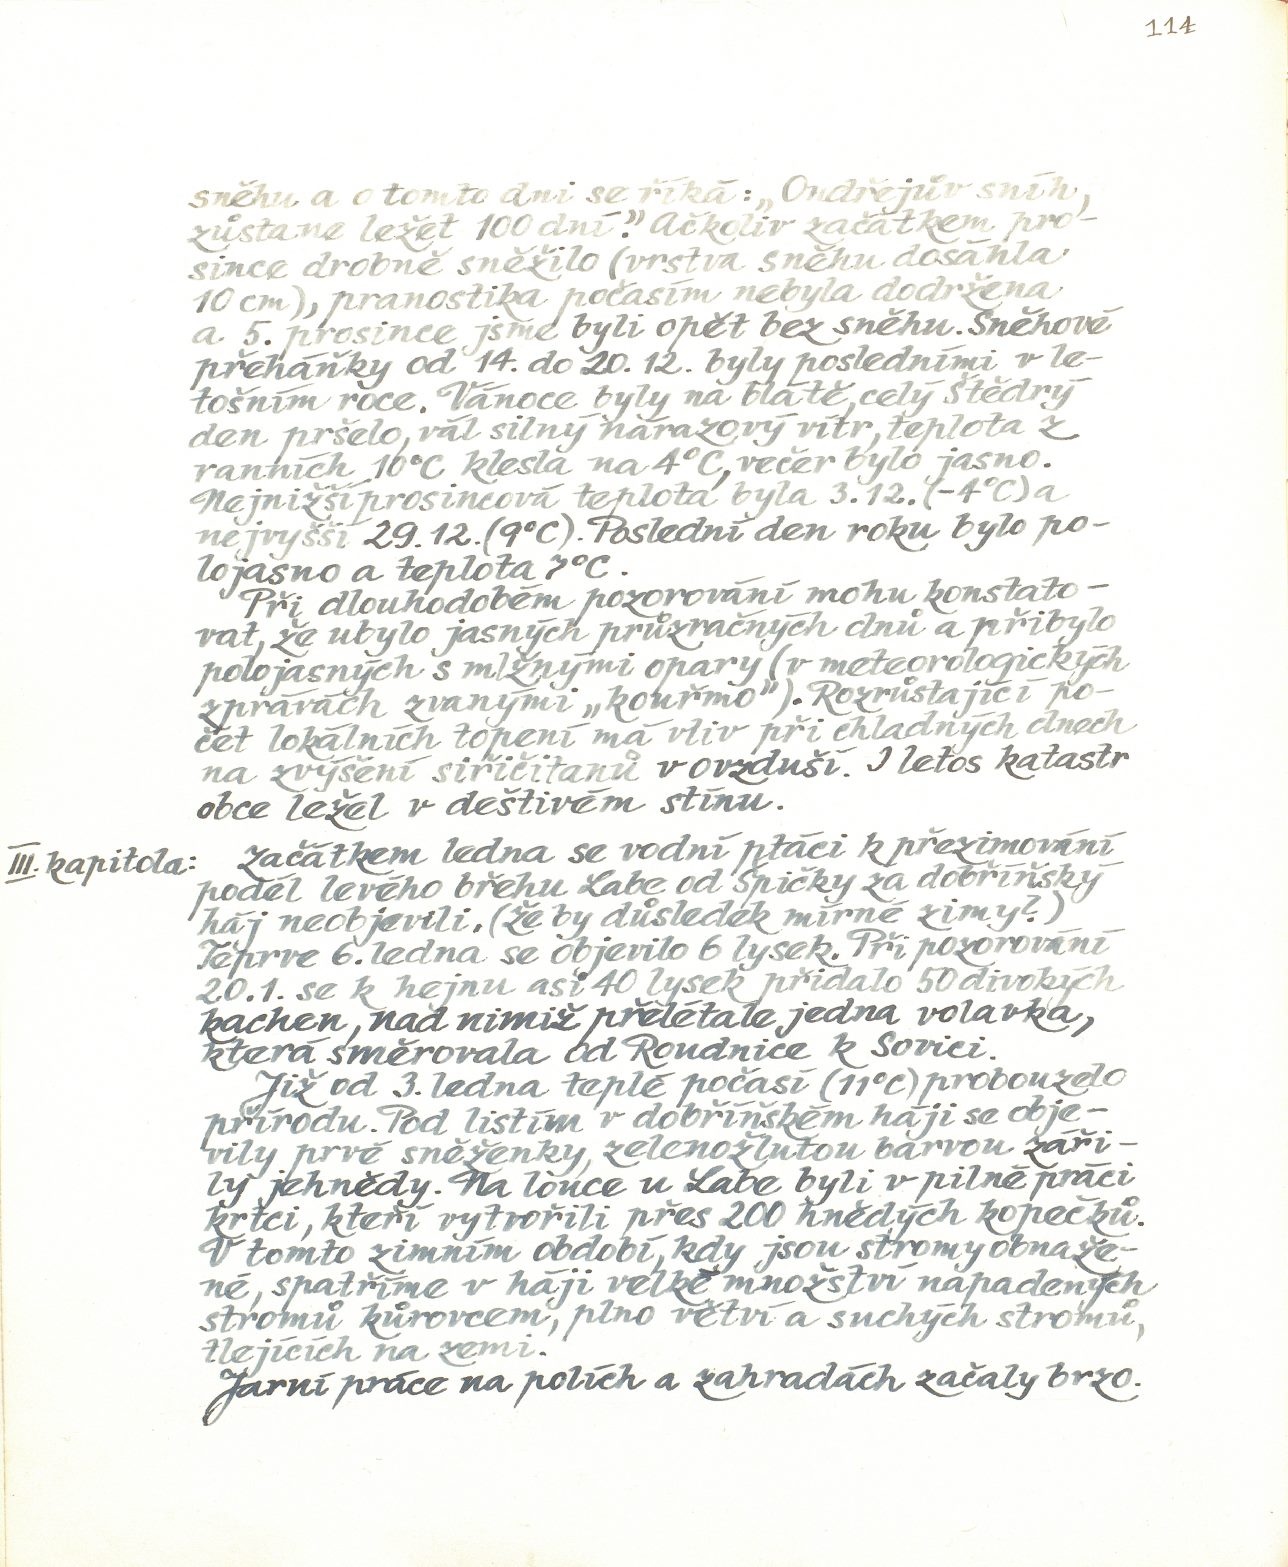 114
sněhu a o tomto dni se říká: „Ondřejův sníh,
zůstane ležet 100 dní". Ačkoliv začátkem pro-
since drobně sněžilo (vrstva sněhu dosáhla
10 cm), pranostika počasím nebyla dodržena
a 5. prosince jsme byli opět bez sněhu. Sněhové
přeháňky od 14. do 20. 12. byly posledními v le-
tošním roce. Vánoce byly na blátě, celý Štědrý
den pršelo, vál silný nárazový vítr, teplota z
ranních 10°C klesla na 4°C, večer bylo jasno.
Nejnižší prosincová teplota byla 3. 12. (-4°C) a
nejvyšší 29. 12. (9°C). Poslední den roku bylo po-
lojasno a teplota 7°C.
Při dlouhodobém pozorování mohu konstato-
vat, že ubylo jasných průzračných dnů a přibylo
polojasných s mlžnými opary (v meteorologických
zprávách zvanými „kouřmo"). Rozrůstající po-
čet lokálních topení má vliv při chladných dnech
na zvýšení siřičitanů v ovzduší. I letos katastr
obce ležel v deštivém stínu.
III. kapitola: Začátkem ledna se vodní ptáci k přezimování
podél levého břehu Labe od Špičky za dobříňský
háj neobjevili. (Že by důsledek mírné zimy?)
Teprve 6. ledna se objevilo 6 lysek. Při pozorování
20. 1. se k hejnu asi 40 lysek přidalo 50 divokých
kachen, nad nimiž přelétale jedna volavka,
která směrovala od Roudnice k Sovici.
Již od 3. ledna teplé počasí (11°C) probouzelo
přírodu. Pod listím v dobříňském háji se obje-
vily prvé sněženky, zelenožlutou barvou záři-
ly jehnědy. Na louce u Labe byli v pilné práci
krtci, kteří vytvořili přes 200 hnědých kopečků.
V tomto zimním období, kdy jsou stromy obnaže-
né, spatříme v háji velké množství napadených
stromů kůrovcem, plno větví a suchých stromů,
tlejících na zemi.
Jarní práce na polích a zahradách začaly brzo.